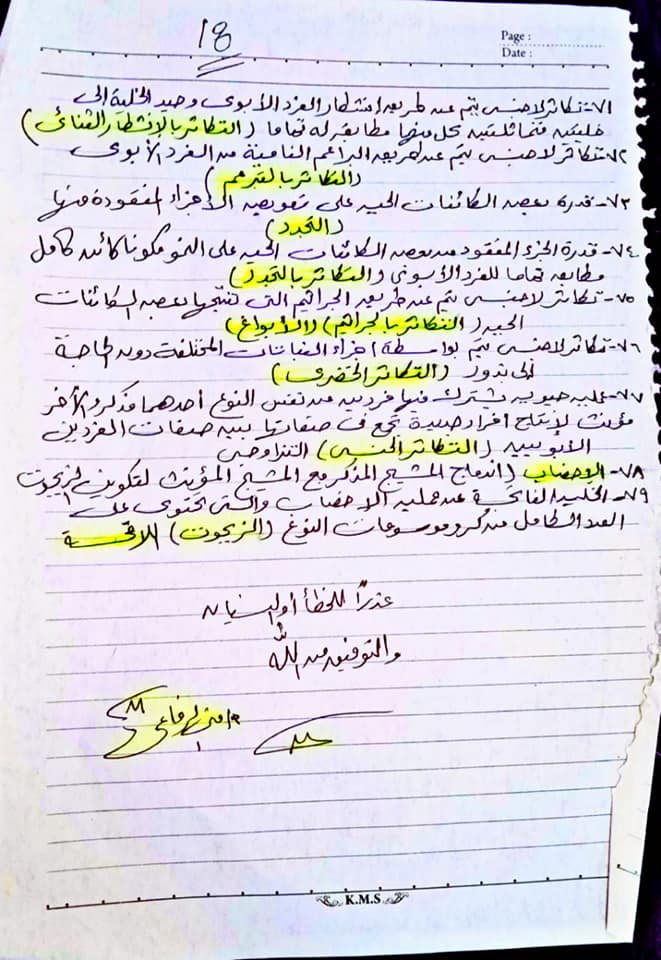 18
Page :
Date :
٧١- تكاثر لاجنسى يتم عن طريق انشطار الفرد الأبوى وحيد الخلية الى
خليتين متماثلتين كل منها مطابقة له تماما (التكاثر بالإنشطار الثنائى)
٧٢- تكاثر لاجنسى يتم عن طريق البراعم النامية من الفرد الأبوى
(التكاثر بالتبرعم)
٧٣- قدرة بعض الكائنات الحية على تعويض الأجزاء المفقودة منها
(التجدد)
٧٤- قدرة الجزء المفقود من بعض الكائنات الحية على النمو مكونا كائن كامل
مطابق تماما للفرد الأبوى (التكاثر بالتجدد)
٧٥- تكاثر لاجنسى يتم عن طريق الجراثيم التى تنتجها بعض الكائنات
الحية (التكاثر بالجراثيم) (الأبواغ)
٧٦- تكاثر لاجنسى يتم بواسطة اجزاء النباتات المختلفة دون الحاجة
الى بذور (التكاثر الخضرى)
٧٧- عملية حيوية يشترك فيها فردين من نفس النوع أحدهما مذكر والأخر
مؤنث لإنتاج أفراد جديدة تجمع فى صفاتها بين صفات الفردين
الأبويين (التكاثر الجنسى) التزاوجى
٧٨- الإخصاب (اندماج المشيج المذكر مع المشيج المؤنث لتكوين الزيجوت
٧٩- الخلية الناتجة عن عملية الاخصاب والتى تحتوى على
العدد الكامل من كروموسومات النوع (الزيجوت) اللاقحة
عذراً للخطأ أو النسيان
والتوفيق من الله
الرفاعى
K.M.S